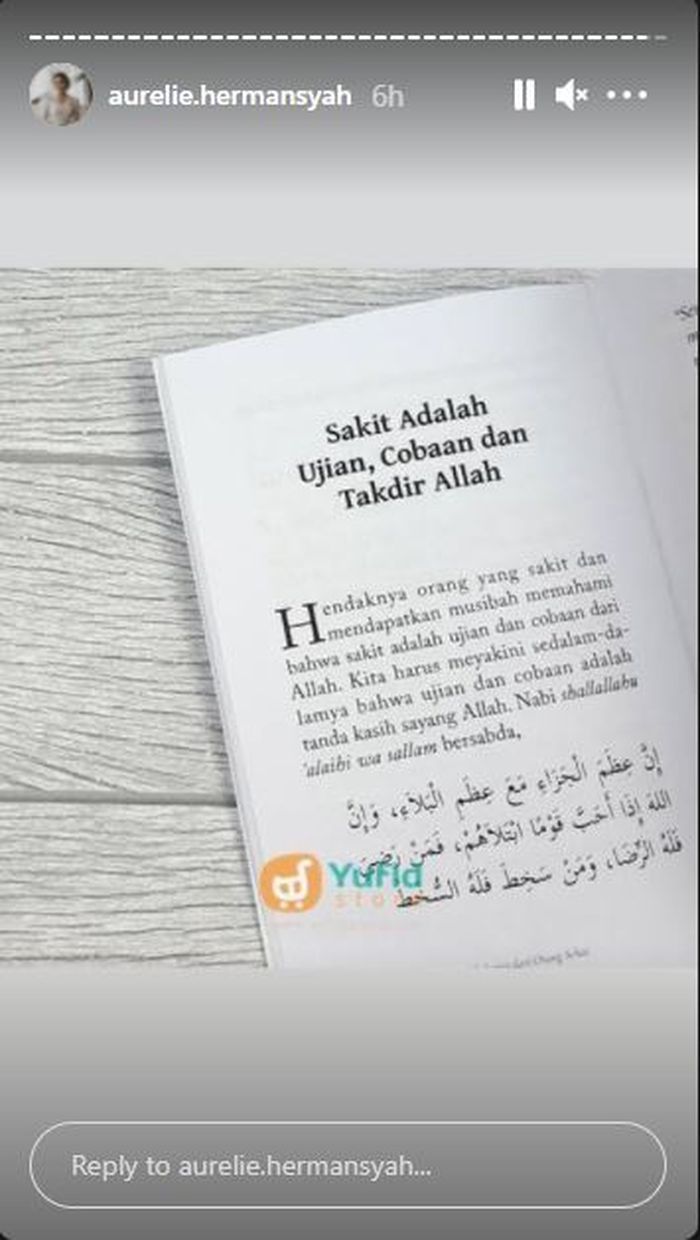 aurelie.hermansyah 6h
Sakit Adalah
Ujian, Cobaan dan
Takdir Allah
Hendaknya orang yang sakit dan
mendapatkan musibah memahami
bahwa sakit adalah ujian dan cobaan dari
Allah. Kita harus meyakini sedalam-da-
lamya bahwa ujian dan cobaan adalah
tanda kasih sayang Allah. Nabi shallallahu
'alaihi wa sallam bersabda,
إِنَّ عِظَمَ الْجَزَاءِ مَعَ عِظَمِ الْبَلَاءِ، وَإِنَّ
اللهَ إِذَا أَحَبَّ قَوْمًا ابْتَلَاهُمْ، فَمَنْ رَضِيَ
فَلَهُ الرِّضَا، وَمَنْ سَخِطَ فَلَهُ السُّخْطُ
YuFid
store
Reply to aurelie.hermansyah...